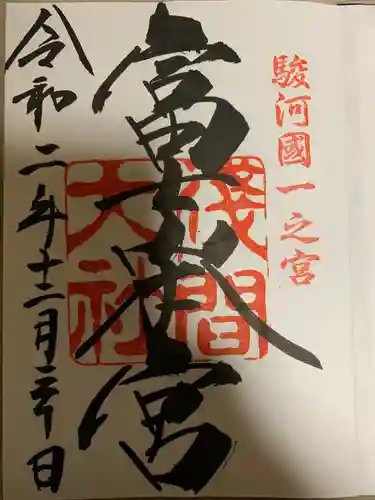 駿河國一之宮
富士本宮
淺間大社
令和二年十二月三十日